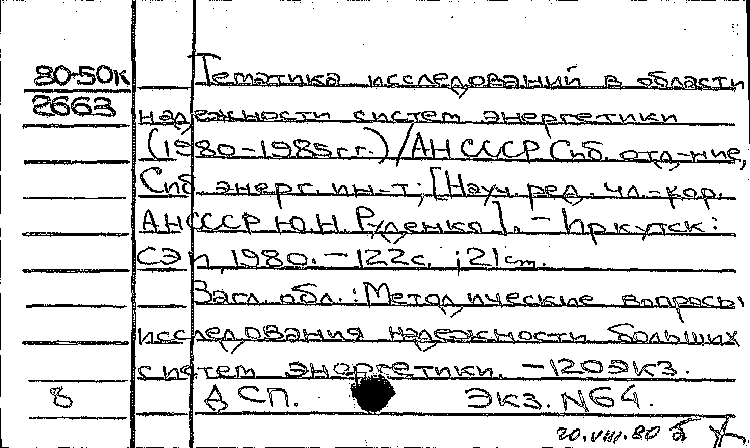 80-50к Тематика исследований в области
2663 надежности систем энергетики
(1980-1985гг.)/АН СССР Сиб. отд-ние,
Сиб. энерг. ин-т; [Науч. ред. чл.-кор.
АН СССР Ю.Н. Руденко]. - Иркутск:
СЭИ, 1980. - 122с. ; 21см.
Загл. обл.: Методические вопросы
исследования надежности больших
систем энергетики. - 120экз.
8 ДСП. Экз. N64.
20.VIII.80